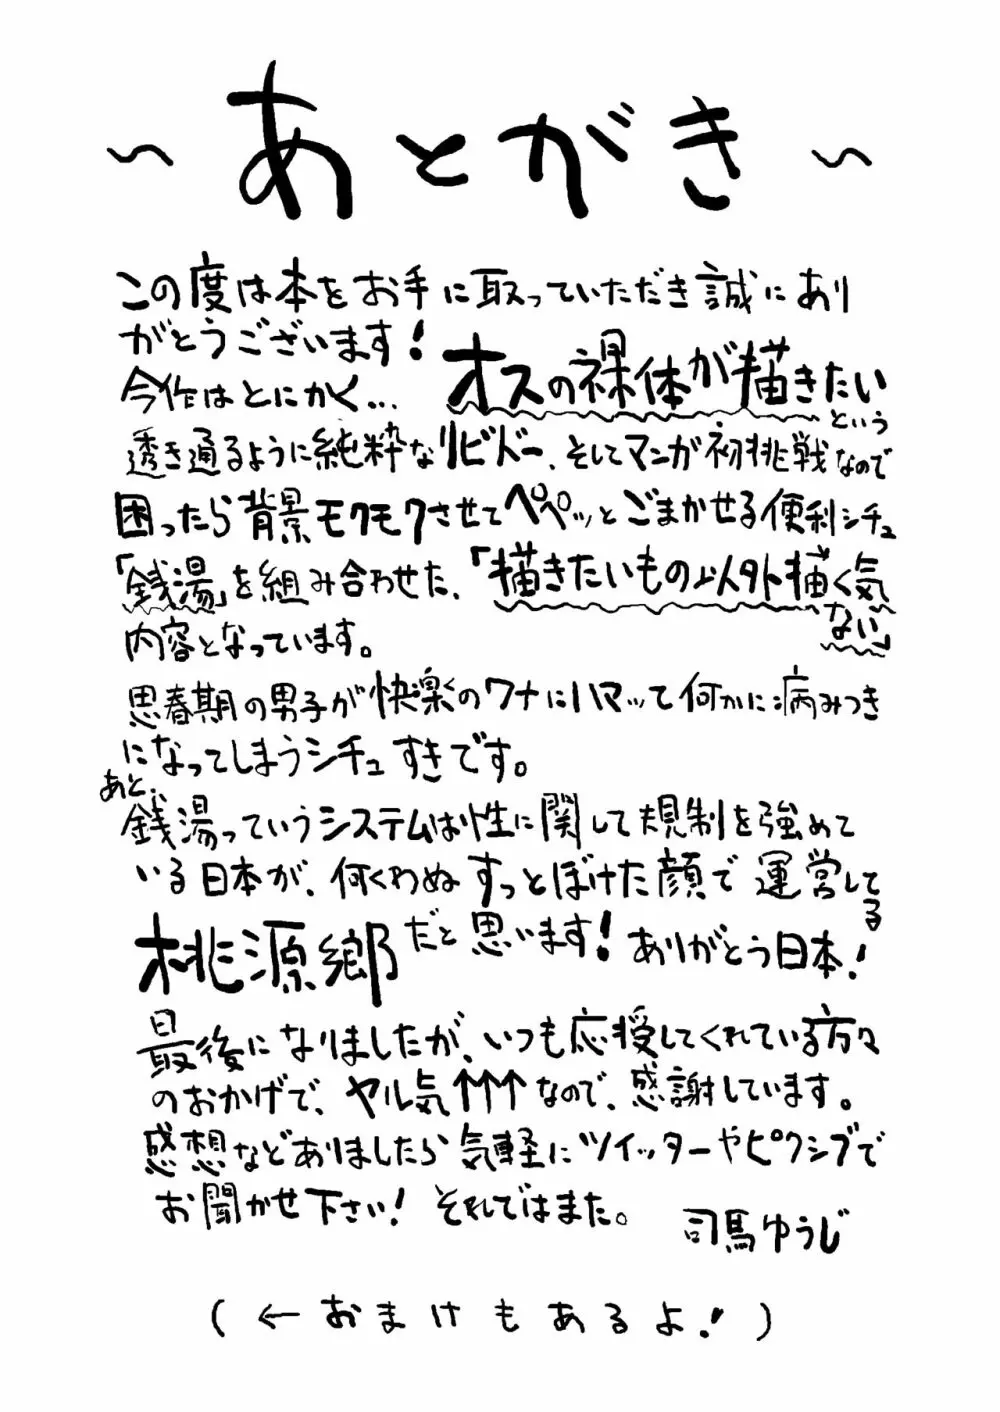 ～あとがき～
この度は本をお手に取っていただき誠にあり
がとうございます!
今作はとにかく... オスの裸体が描きたい
という
透き通るように純粋なリビドー、そしてマンガ初挑戦なので
困ったら背景モクモクさせてペペッとごまかせる便利シチュ
「銭湯」を組み合わせた、「描きたいもの以外描く気
ない」
内容となっています。
思春期の男子が快楽のワナにハマって何かに病みつき
になってしまうシチュすきです。
あと、
銭湯っていうシステムは性に関して規制を強めて
いる日本が、何くわぬすっとぼけた顔で運営して
る
桃源郷だと思います! ありがとう日本!
最後になりましたが、いつも応援してくれている方々
のおかげで、ヤル気↑↑↑なので、感謝しています。
感想などありましたら気軽にツイッターやピクシブで
お聞かせ下さい! それではまた。
司馬ゆうじ
(←おまけもあるよ!)